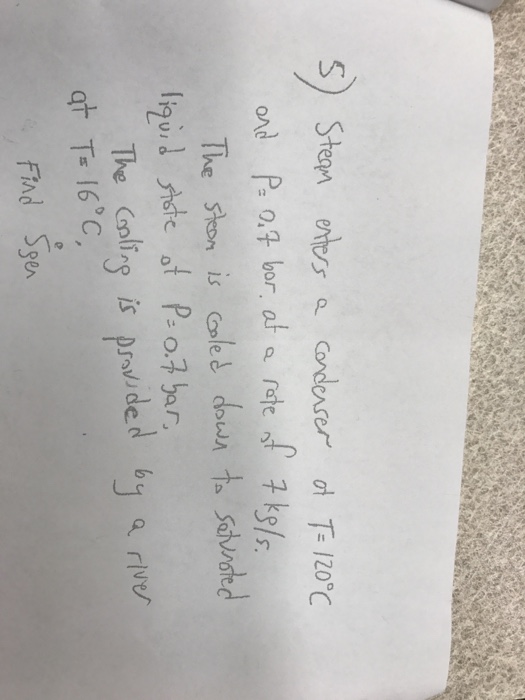 5) Steam enters a condenser at T=120°C
and P=0.7 bar. at a rate of 7 kg/s.
The steam is cooled down to saturated
liquid state at P=0.7 bar.
The cooling is provided by a river
at T=16°C.
Find Ṡgen